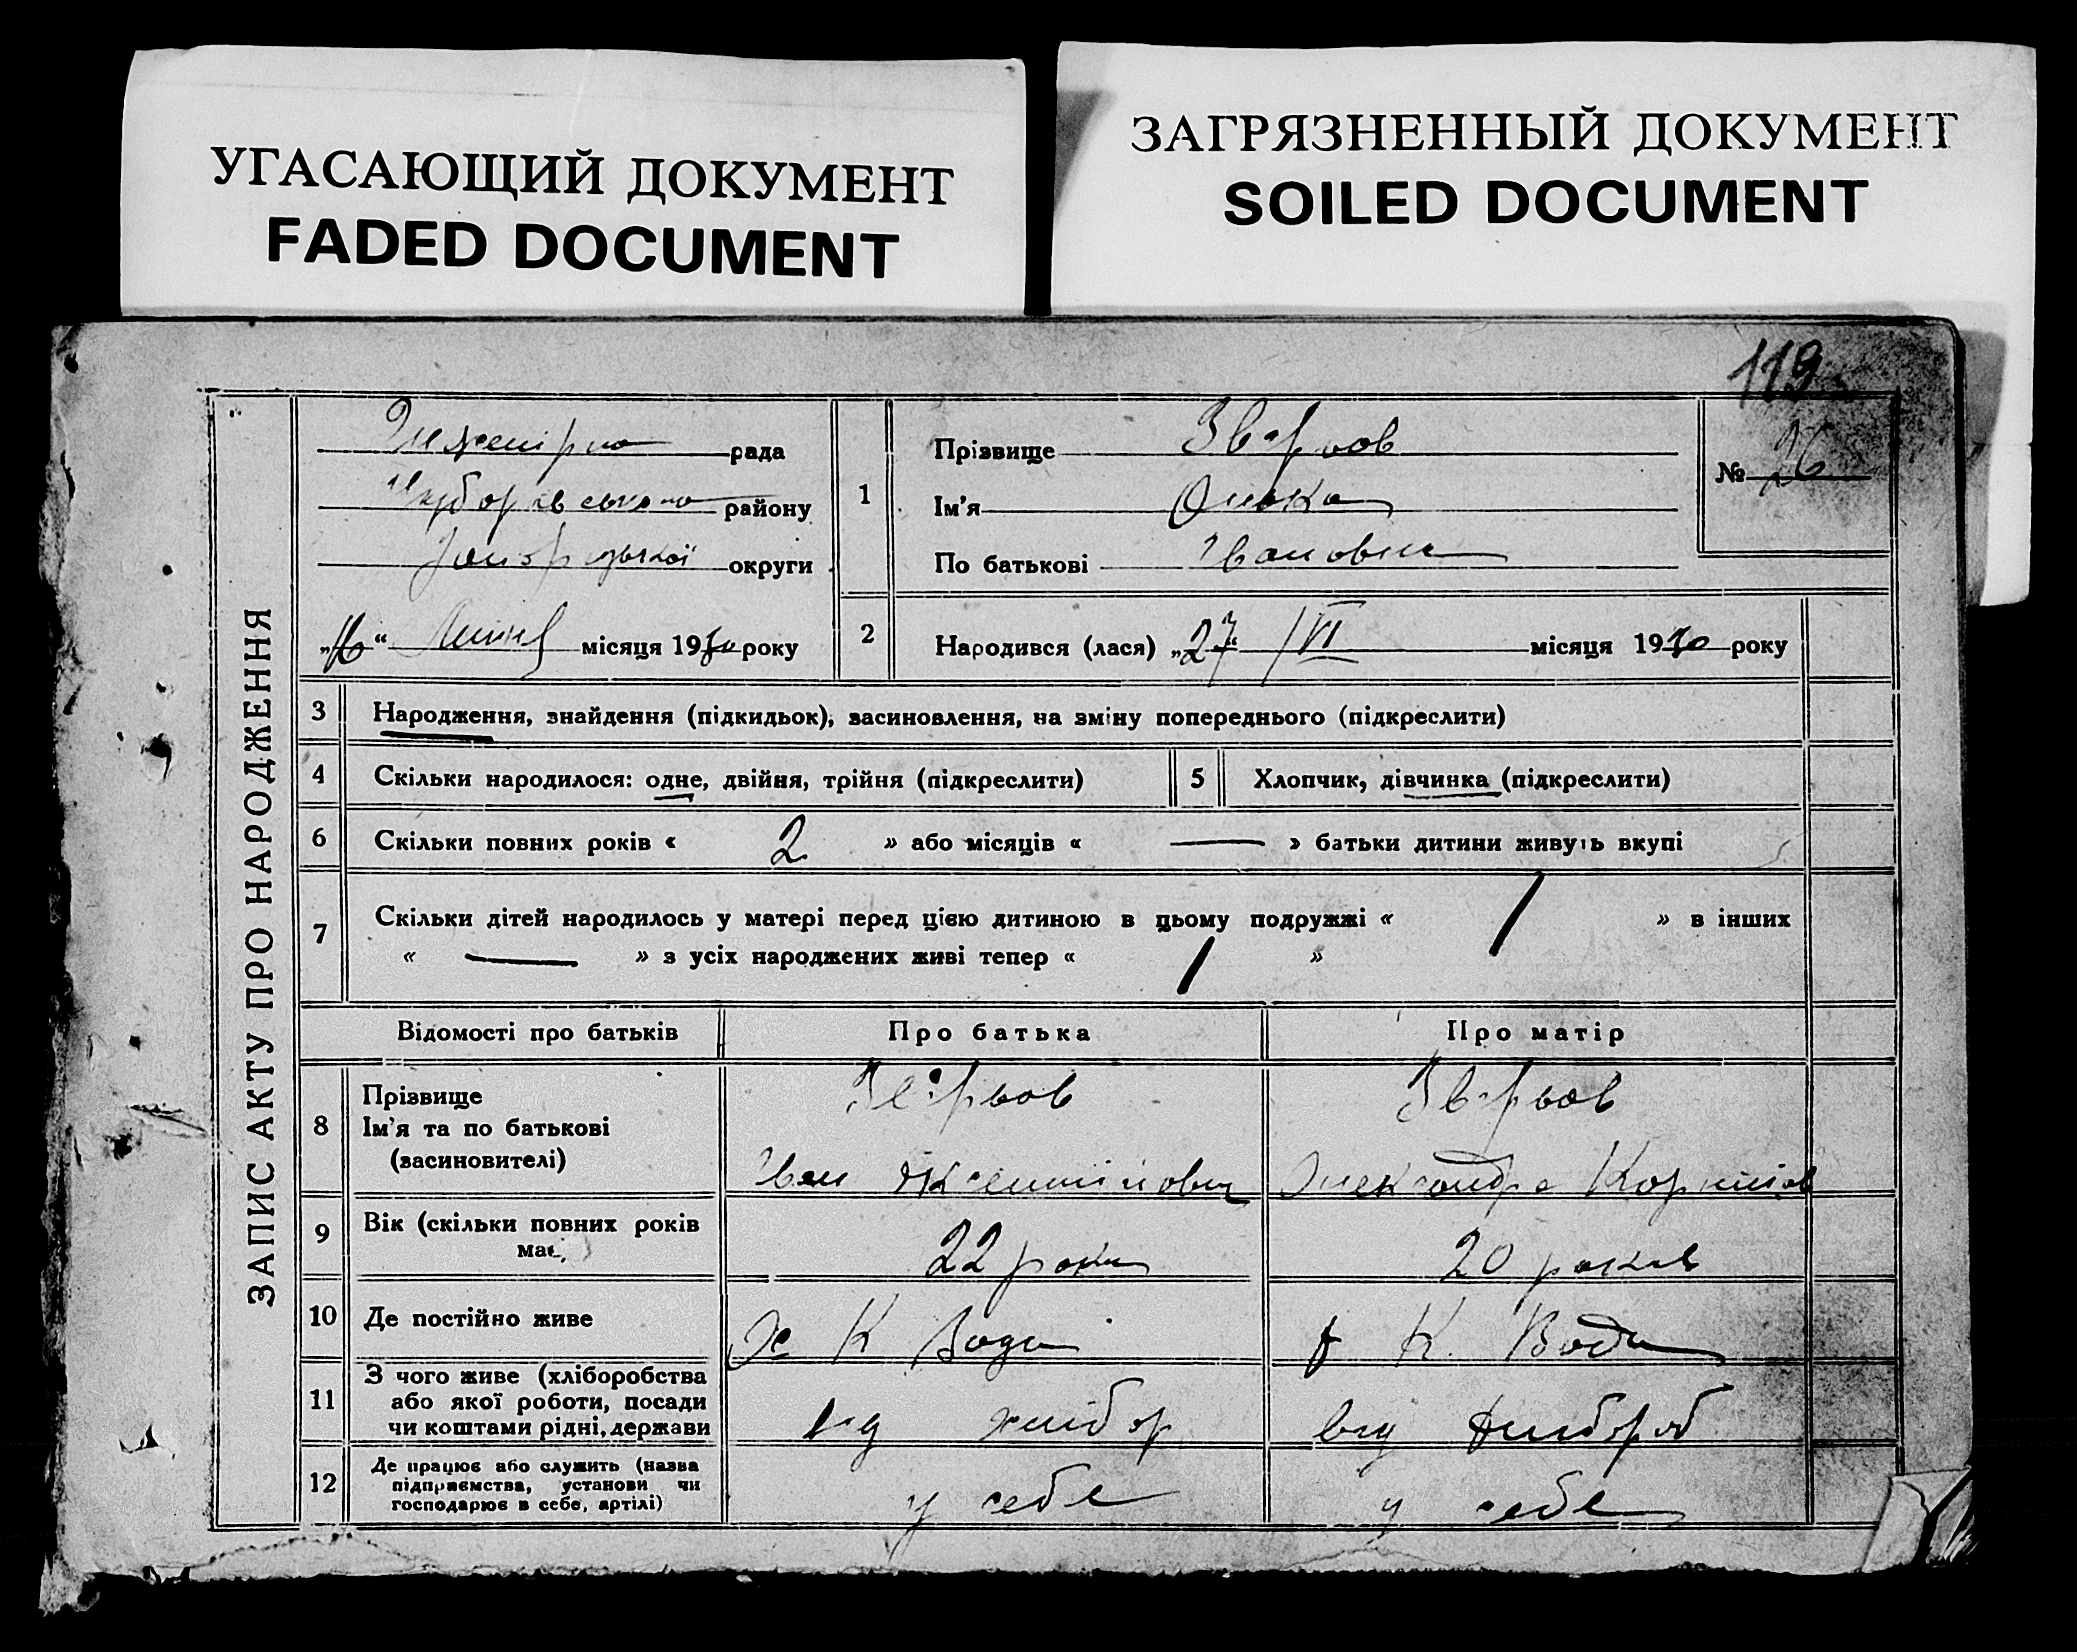 УГАСАЮЩИЙ ДОКУМЕНТ
FADED DOCUMENT
ЗАГРЯЗНЕННЫЙ ДОКУМЕНТ
SOILED DOCUMENT
119
ЗАПИС АКТУ ПРО НАРОДЖЕННЯ
рада
району
округи
"16" місяця 1930 року
1
Прізвище Звєрьов
Ім'я
По батькові Івановна
№ 26
2 Народився (лася) "27" VI місяця 1930 року
3 Народження, знайдення (підкидьок), засиновлення, на зміну попереднього (підкреслити)
4 Скільки народилося: одне, двійня, трійня (підкреслити)
5 Хлопчик, дівчинка (підкреслити)
6 Скільки повних років « 2 » або місяців « — » батьки дитини живуть вкупі
7 Скільки дітей народилось у матері перед цією дитиною в цьому подружжі « 1 » в інших
« — » з усіх народжених живі тепер « 1 »
Відомості про батьків Про батька Про матір
8 Прізвище
Ім'я та по батькові
(засиновителі)
Звєрьов
Іван
Звєрьов
Олександра
9 Вік (скільки повних років
має)
22 роки 20 років
10 Де постійно живе
К Води К. Води
11 З чого живе (хліборобства
або якої роботи, посади
чи коштами рідні, держави
від хлібор від
12 Де працює або служить (назва
підприємства, установи чи
господарює в себе, артілі)
у себе у себе